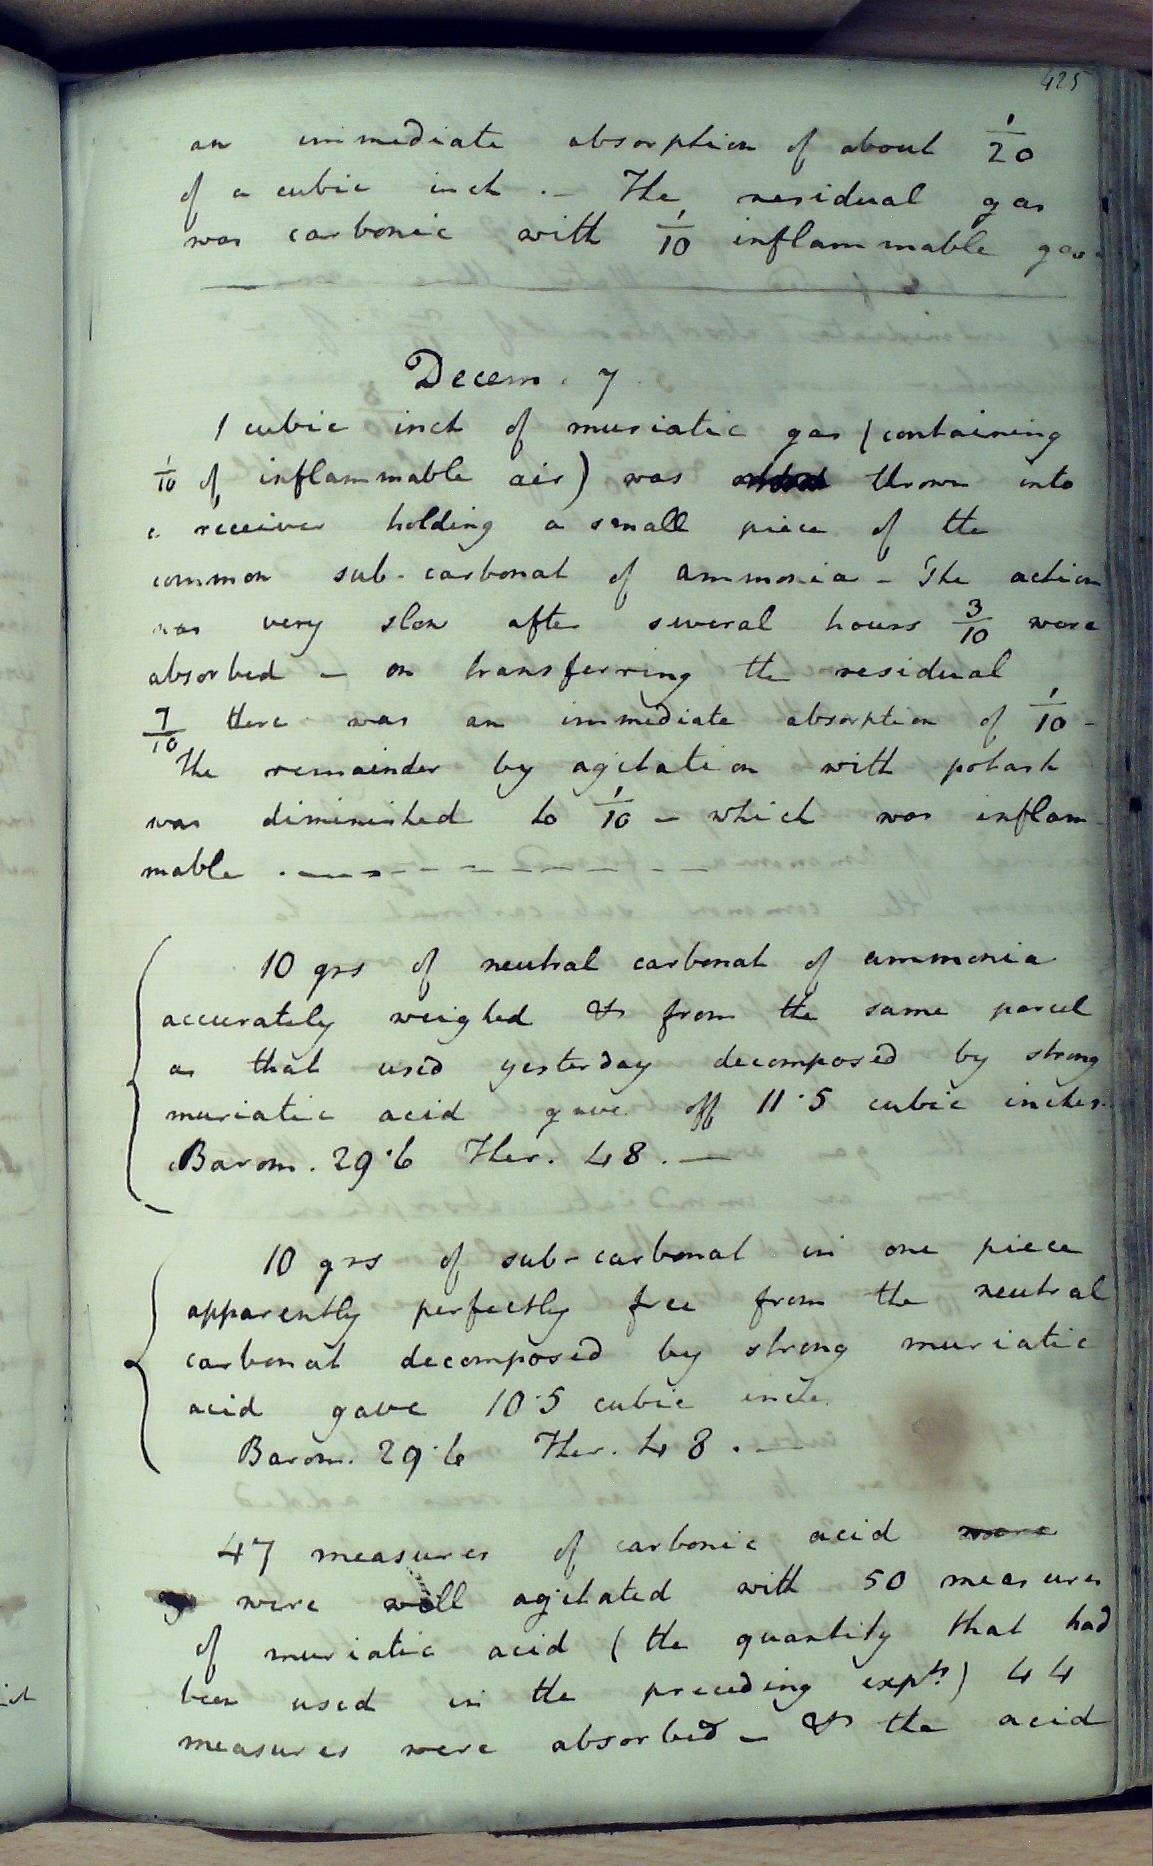 425
an immediate absorption of about 1/20
of a cubic inch . – The residual gas
was carbonic with 1/10 inflammable gas
Decem. 7
1 cubic inch of muriatic gas (containing
1/10 of inflammable air) was thrown into
a receiver holding a small piece of the
common sub-carbonat of ammonia – The action
was very slow after several hours 3/10 were
absorbed – on transferring the residual
7/10 there was an immediate absorption of 1/10 –
The remainder by agitation with potash
was diminished to 1/10 – which was inflam-
mable . – – – – – – – –
10 grs of neutral carbonat of ammonia
accurately weighed & from the same parcel
as that used yesterday decomposed by strong
muriatic acid gave off 11·5 cubic inches.
Barom. 29·6 Ther. 48. —
10 grs of sub-carbonat in one piece
apparently perfectly free from the neutral
carbonat decomposed by strong muriatic
acid gave 10·5 cubic inch.
Barom. 29·6 Ther. 48 . —
47 measures of carbonic acid were
were well agitated with 50 measures
of muriatic acid (the quantity that had
been used in the preceding expts) 44
measures were absorbed – & the acid